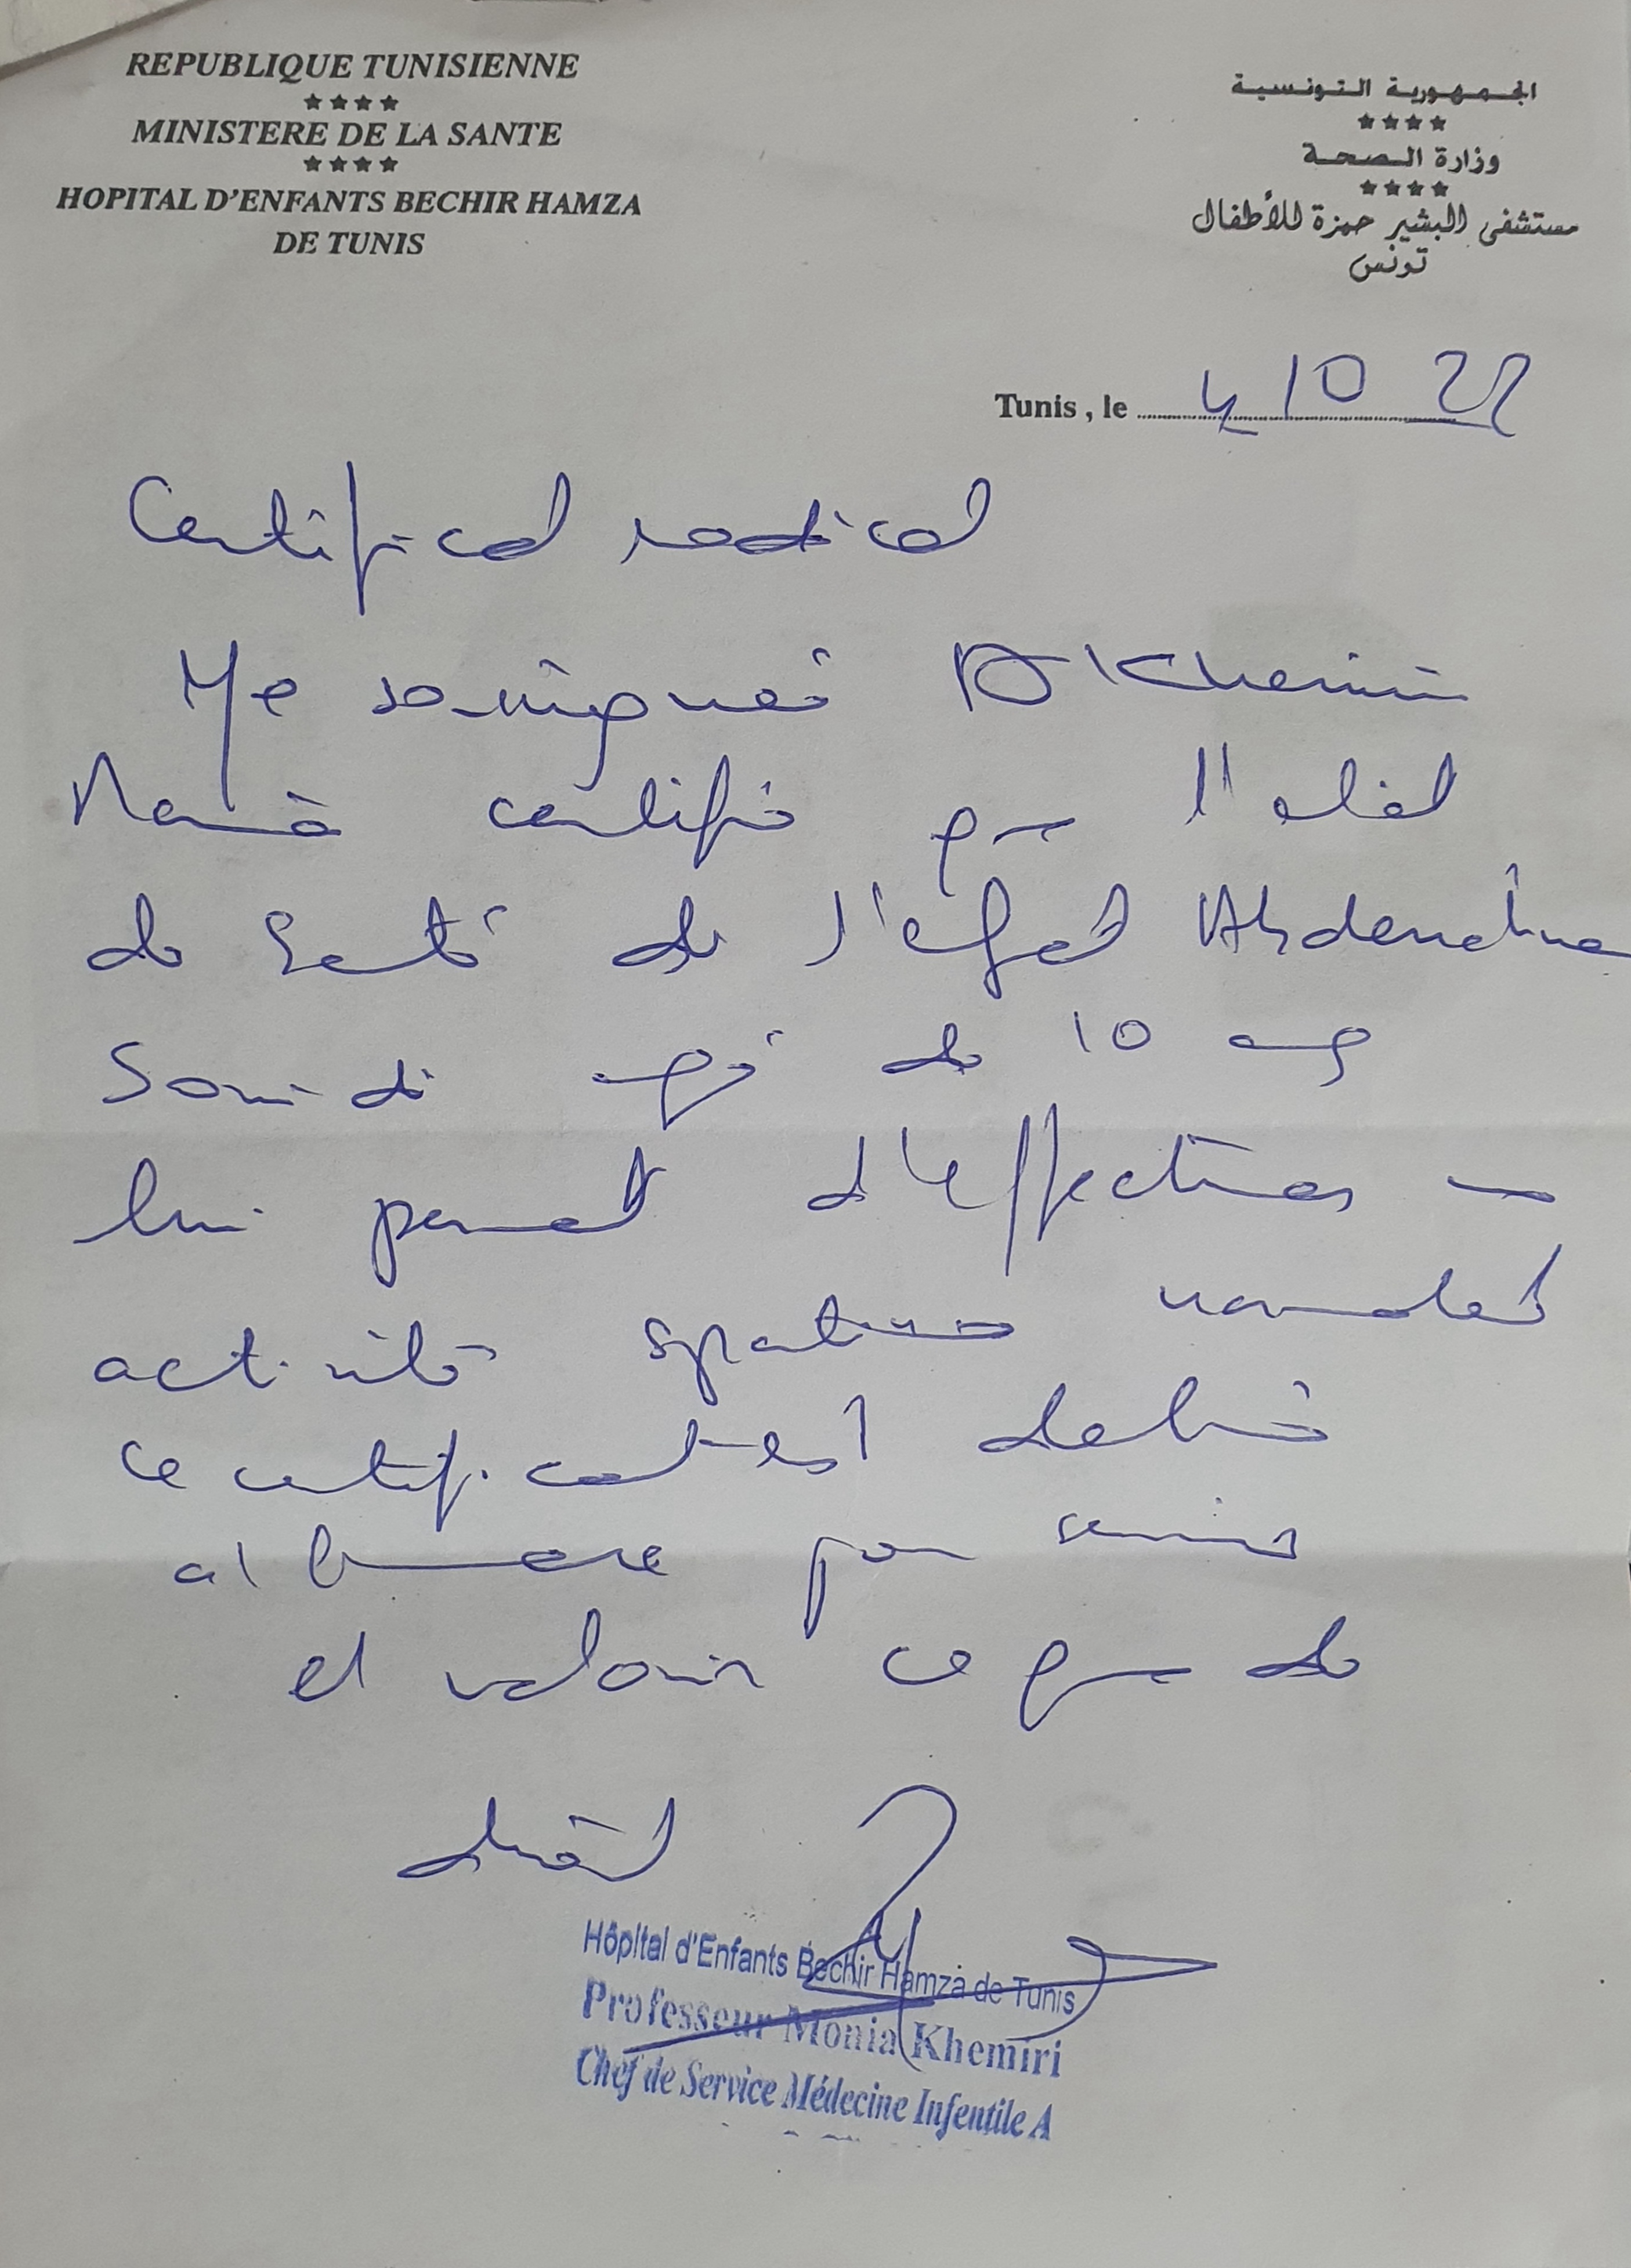 REPUBLIQUE TUNISIENNE
★★★★
MINISTERE DE LA SANTE
★★★★
HOPITAL D'ENFANTS BECHIR HAMZA
DE TUNIS
الجمهورية التونسية
★★★★
وزارة الصحة
★★★★
مستشفى البشير حمزة للأطفال
تونس
Tunis , le 4 10 22
Certificat medical
Je soussigné Dr Khemiri
Monia certifie que l'état
de santé de l'enfant
Souidi agé de 10 ans
lui permet d'effectuer une
activité sportive normale
ce certificat est delivré
pour servir
et valoir ce que de
droit
Hôpital d'Enfants Bechir Hamza de Tunis
Professeur Monia Khemiri
Chef de Service Médecine Infentile A